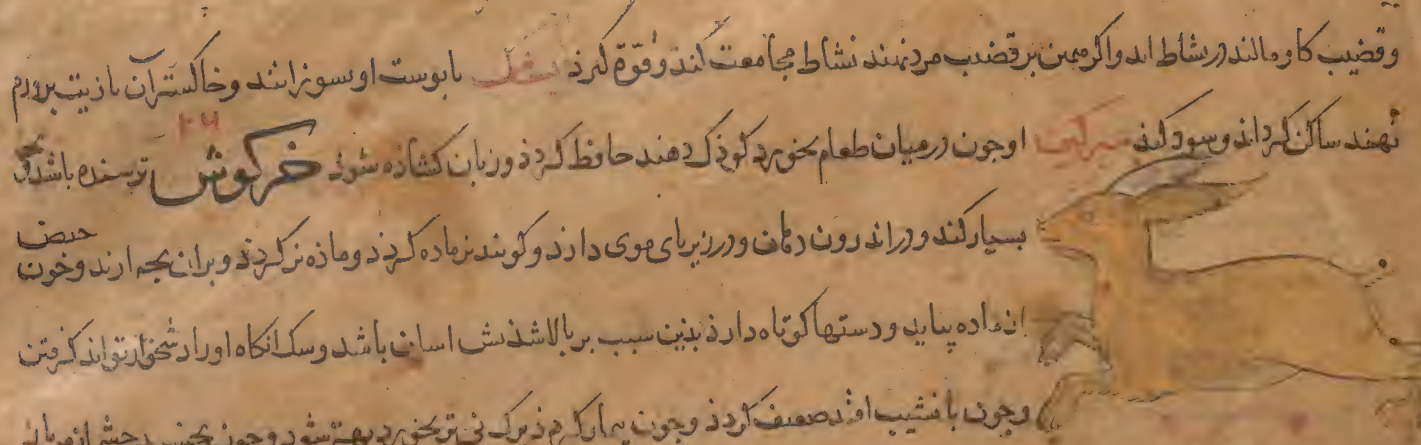 وقضیب کاو مالند در نشاط اید واکر همین بر قضیب مرد نهند نشاط مجامعت کند وقوة کیرذ بشک با پوست او بسوزانند وخاکستر آن با زیت بر ورم
نهند ساکن کرداند وسود کند سرکین او جون در میان طعام بخورد کوذک دهند حافظ کردذ وزبان کشاذه شوذ خرکوش ۲۶ ترسنده باشد بجه
بسیار کند ودر اندرون دهان ودر زیر بای موی دارذ وکویند نر ماده کردذ وماذه نر کردذ وبران بجه ارند وخون حیض
از ماده بیاید ودستها کوتاه دارذ بذین سبب بر بالا شذنش اسان باشد وسک انکاه او را دشخوار تواند کرفتن
وجون با نشیب افتد ضعیف کردذ وجون بیمار کردذ برک نی تر بخورد بهتر شود وجون بخسبد جشم